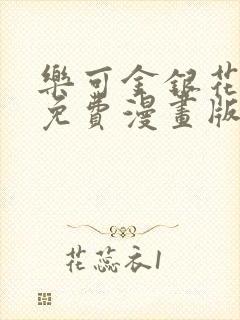 樂可金銀花
免費漫畫版
花蕊衣1